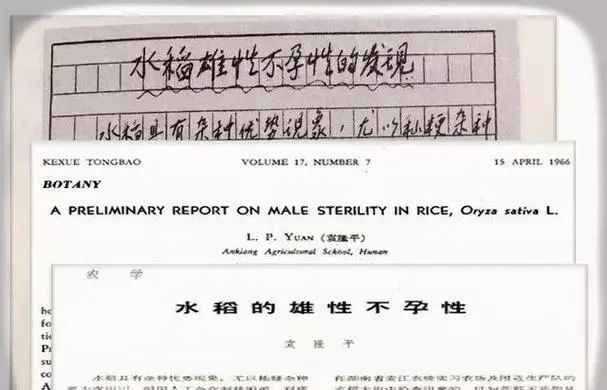 水稻雄性不孕性的发现
水稻具有杂种优势现象，尤以籼粳杂种
KEXUE TONGBAO VOLUME 17, NUMBER 7 15 APRIL 1966
BOTANY
A PRELIMINARY REPORT ON MALE STERILITY IN RICE, Oryza sativa L.
L. P. YUAN (袁隆平)
Ankiang Agricultural School, Hunan
农 学
水稻的雄性不孕性
袁 隆 平
水稻具有杂种优势现象，尤以籼粳杂种 在湖南省安江农校实习农场及附近生产队的